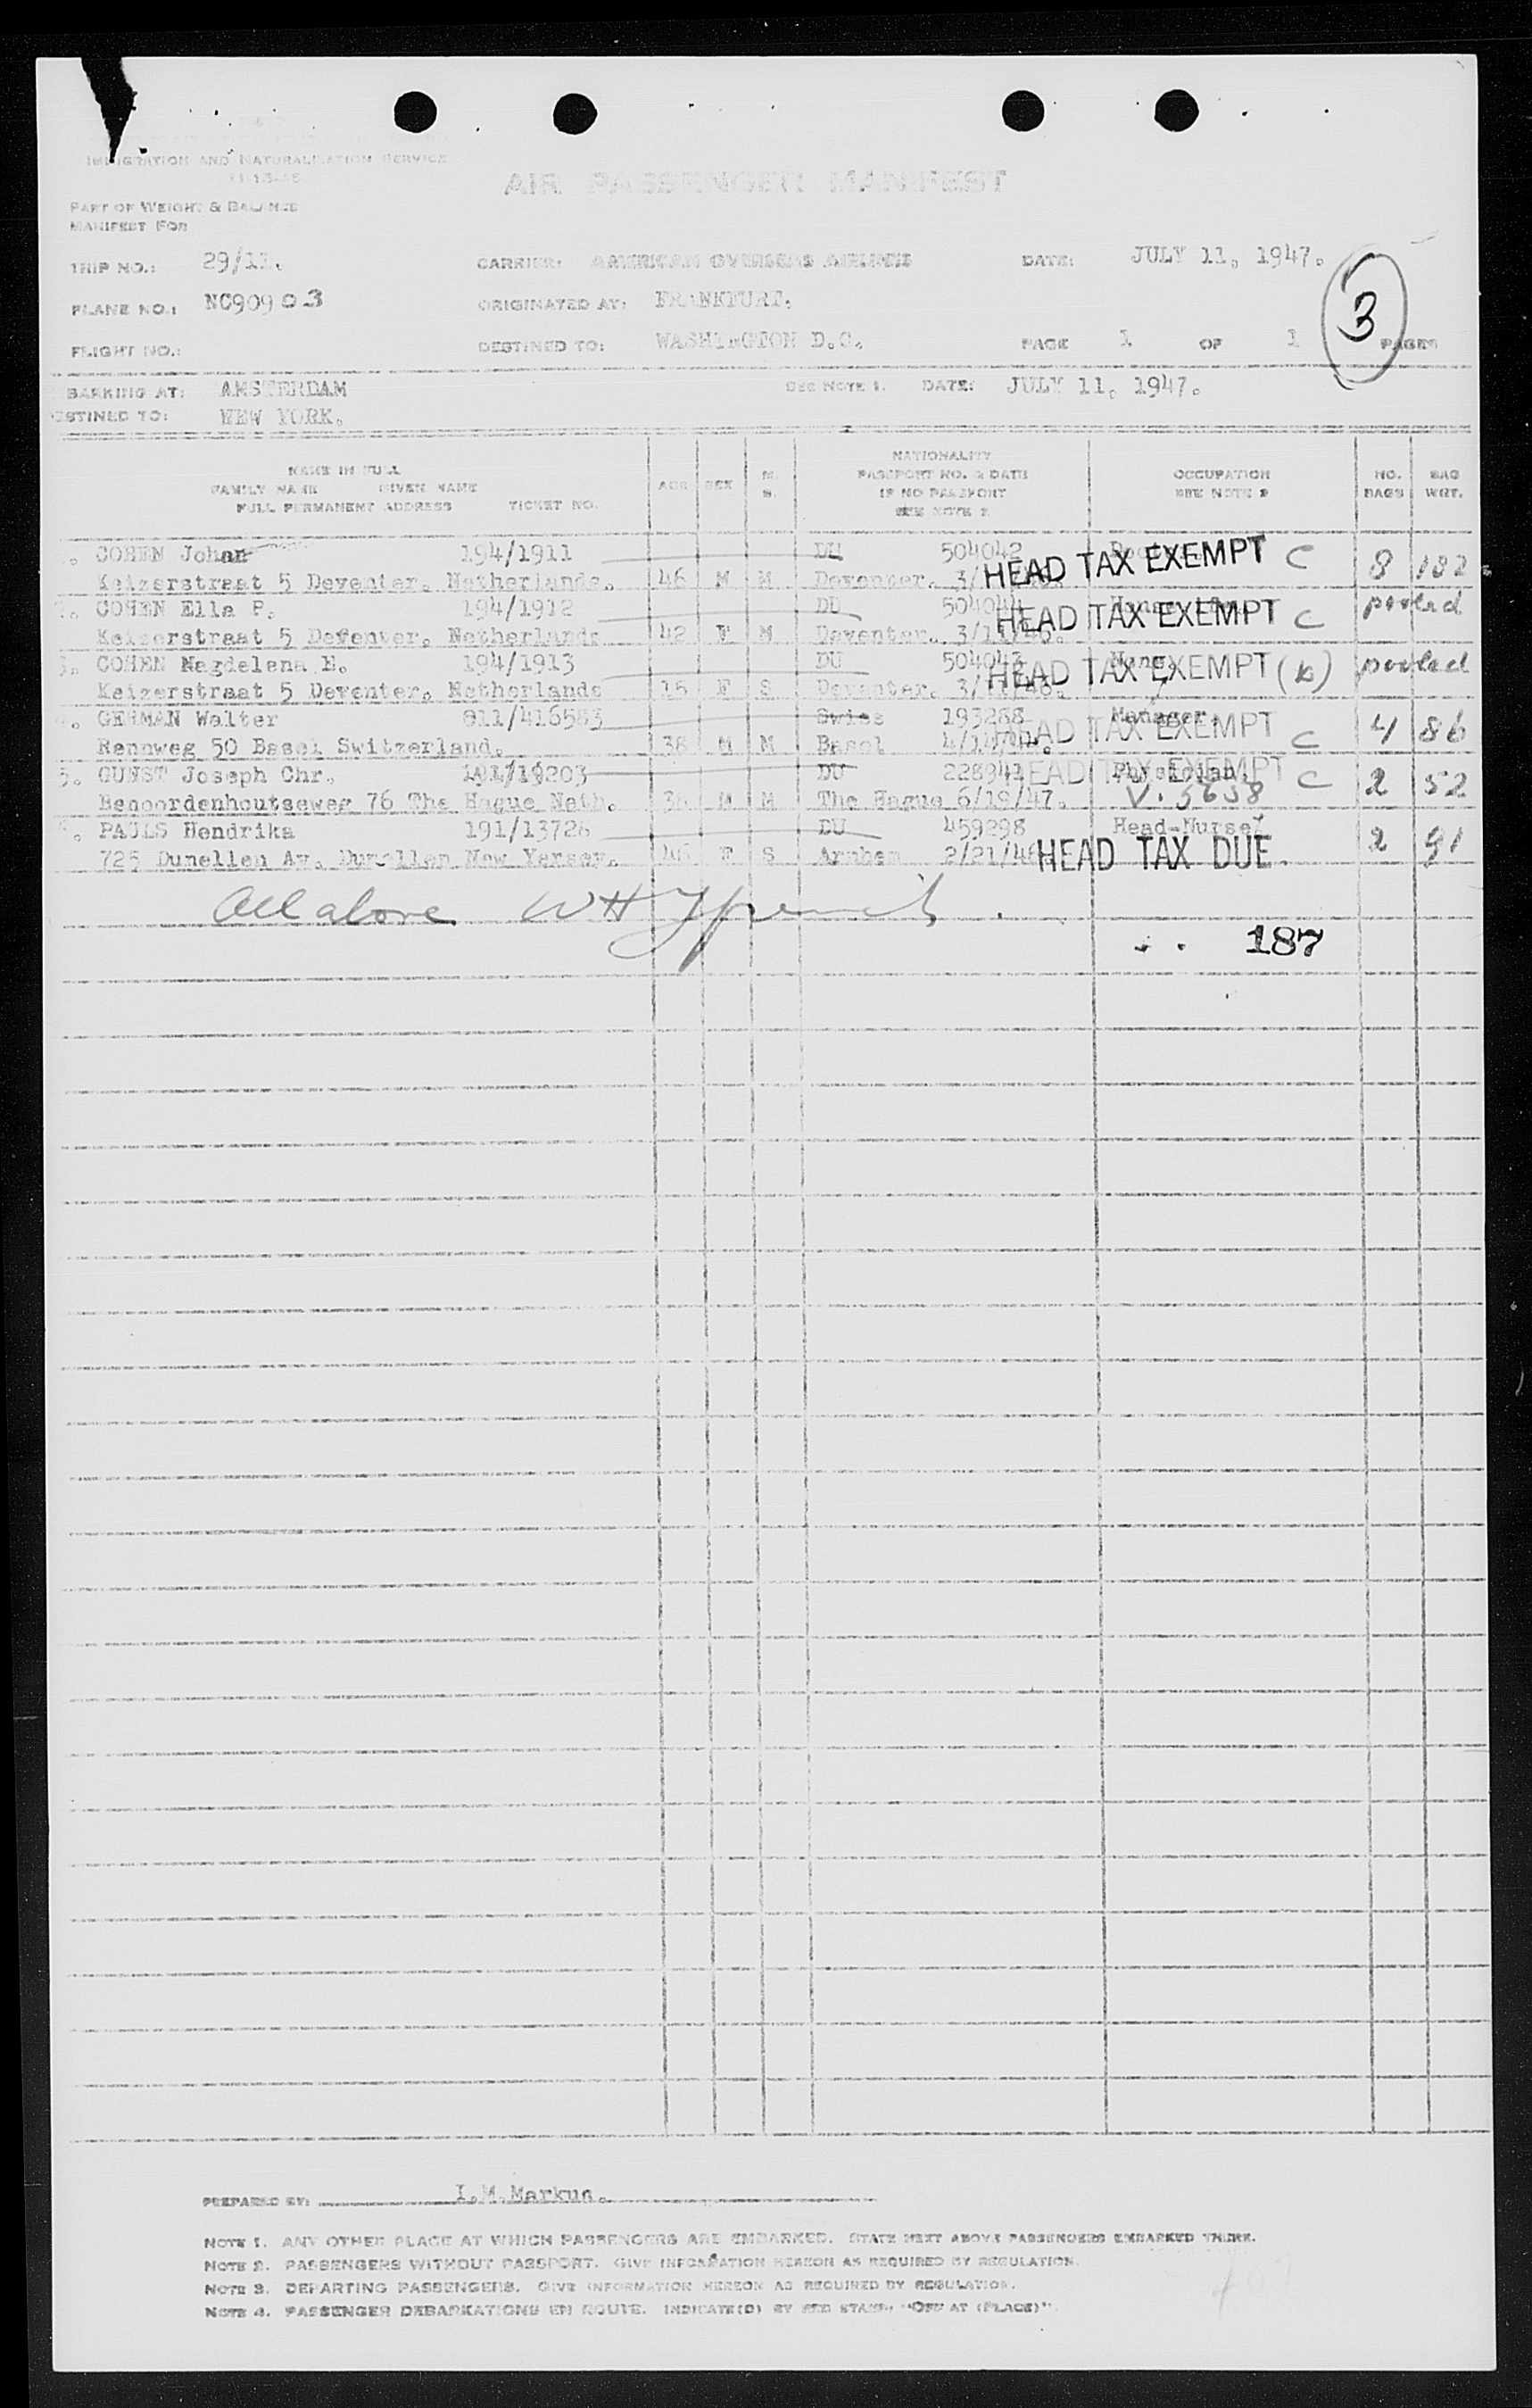 IMMIGRATION AND NATURALIZATION SERVICE
AIR PASSENGER MANIFEST
PART OF WEIGHT & BALANCE
MANIFEST FOR
TRIP NO.: 29/11. CARRIER: AMERICAN OVERSEAS AIRLINES DATE: JULY 11, 1947.
PLANE NO.: NC90903 ORIGINATED AT: FRANKFURT. 3
FLIGHT NO.: DESTINED TO: WASHINGTON D.C. PAGE 1 OF 1 PAGES
BARKING AT: AMSTERDAM SEE NOTE 1. DATE: JULY 11, 1947.
STINED TO: NEW YORK.
NAME IN FULL
FAMILY NAME GIVEN NAME
FULL PERMANENT ADDRESS TICKET NO. AGE SEX M. S. NATIONALITY
PASSPORT NO. & DATE
IF NO PASSPORT
SEE NOTE 2 OCCUPATION
SEE NOTE 2 NO.
BAGS BAG
WGT.
COHEN Johan 194/1911 DU 504042 HEAD TAX EXEMPT C 8 182
Keizerstraat 5 Deventer. Netherlands. 46 M M Deventer.
COHEN Ella P. 194/1912 DU HEAD TAX EXEMPT C pooled
Keizerstraat 5 Defenter. Netherlands 42 F M Deventer. 3/11/46.
3. COHEN Magdelena E. 194/1913 DU 504043 None. HEAD TAX EXEMPT (b) pooled
Keizerstraat 5 Deventer. Netherlands 15 F S Deventer.
GEHMAN Walter 811/416583 Swiss 193288 Manager. HEAD TAX EXEMPT C 4 86
Rennweg 50 Basel Switzerland. 38 M M Basel
5. GUNST Joseph Chr. DU 228941 Physician. HEAD TAX EXEMPT C 2 52
Benoordenhoutseweg 76 The Hague Neth. M M The Hague 6/19/47. V. 5658
PAULS Hendrika 191/13726 DU 459298 Head-Nurse 2 91
725 Dunellen Av. Dunellen New Yersey. 46 F S Arnhem HEAD TAX DUE.
All above WH
187
PREPARED BY: I.M.Markus.
NOTE 1. ANY OTHER PLACE AT WHICH PASSENGERS ARE EMBARKED. STATE NEXT ABOVE PASSENGERS EMBARKED THERE.
NOTE 2. PASSENGERS WITHOUT PASSPORT. GIVE INFORMATION HEREON AS REQUIRED BY REGULATION.
NOTE 3. DEPARTING PASSENGERS. GIVE INFORMATION HEREON AS REQUIRED BY REGULATION.
NOTE 4. PASSENGER DEBARKATIONS EN ROUTE. INDICATE(D) BY RED STAMP, "OFF AT (PLACE)".